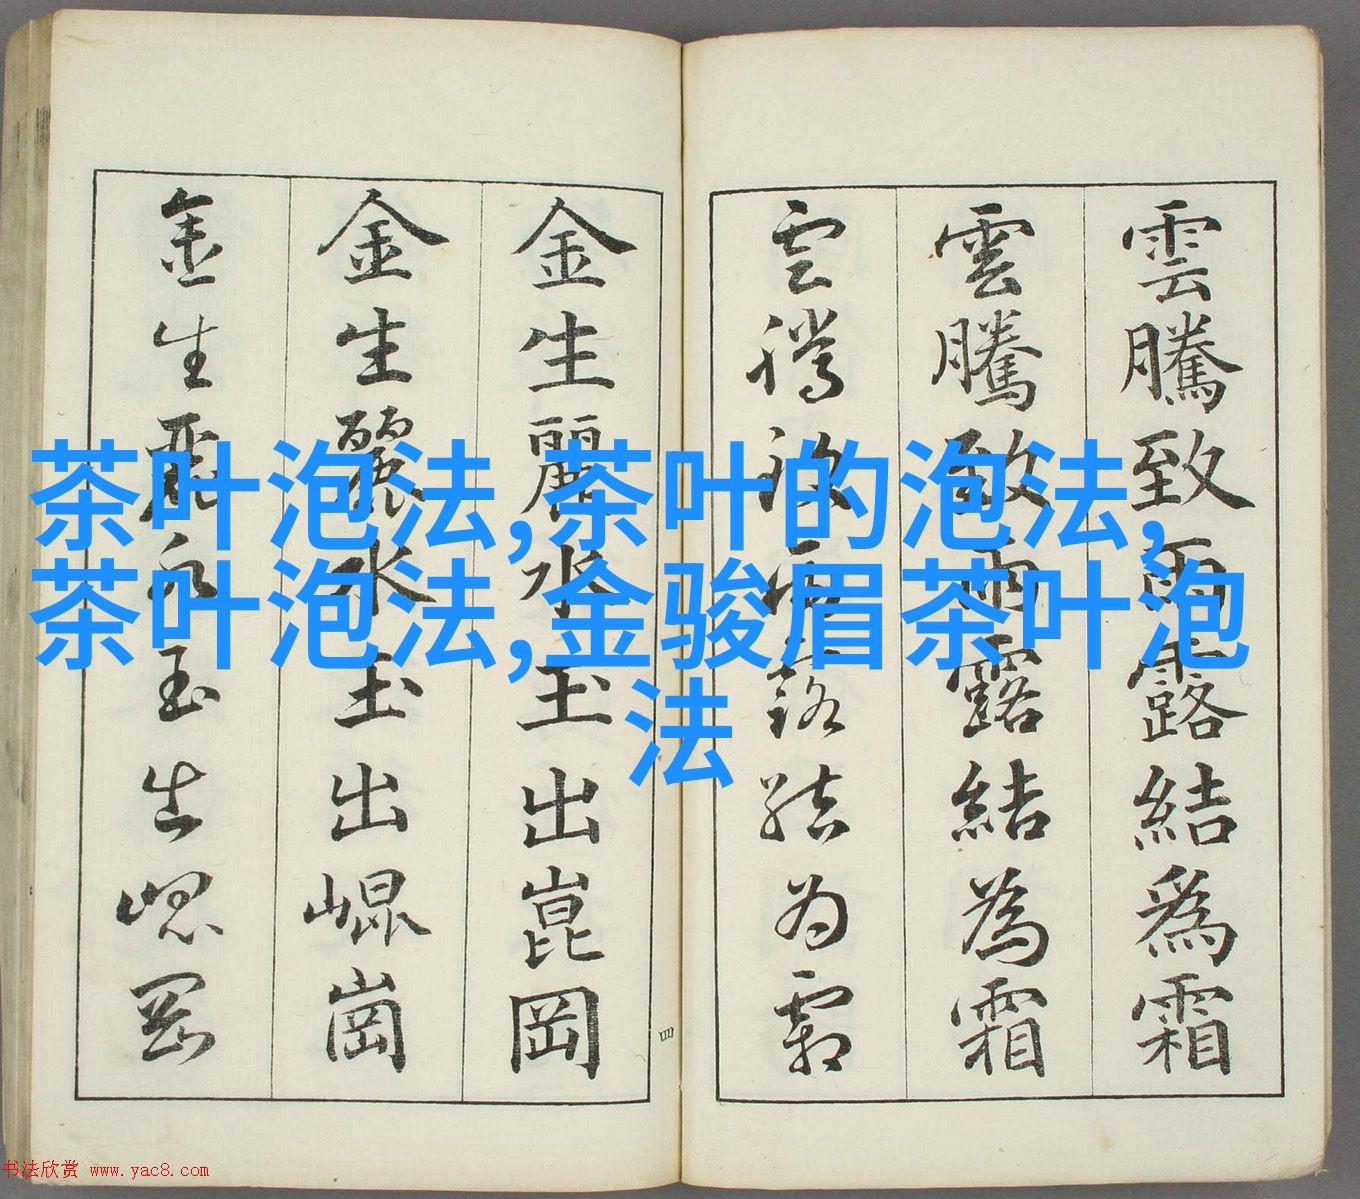 雲騰致雨露結為霜
雲騰致雨露結為霜
雲騰致雨露結為霜
金生麗水玉出崑岡
金生麗水玉出崐崗
金生麗水玉出崐岡
四
茶叶泡法,茶叶的泡法,
茶叶泡法,金骏眉茶叶泡
法
书法欣赏 www.yac8.com